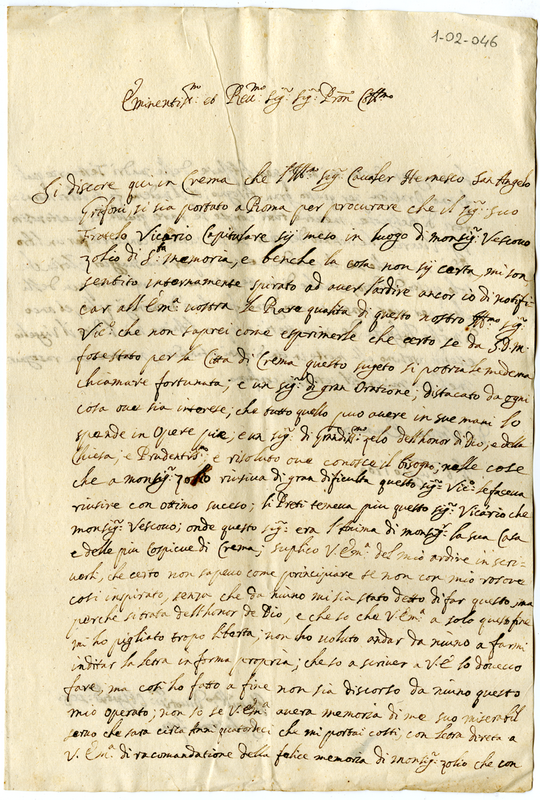 1-02-046
Eminentis.mo et Reu.mo Sig.r Sig.r Pron Coll.mo
Si discore qui in Crema che l'Ill.mo Sig.r Caualer Hermesto San Angelo
Grifoni, si sia portato a Roma per procurare che il sig.r suo
Fratelo Vicario Capitulare sij meso in luogo di monsig.r Vescouo
Zolio di S.ta memoria, e benche la cosa non sij certa, mi son
sentito internamente spirato ad auer l'ardire ancor io di notifi
car all Em.a uostra le Rare qualità di questo nostro Ill.mo sig.r
Vic.o che non saprei come esprimerle che certo se da S.D.M.
fose stato per la Città di Crema questo sugeto si potria la medema
chiamare fortunata; e un sig.r di gran Oratione, distacato da ogni
cosa oue sia interese; che tutto quello puo auere in sue mani lo
spende in Opere pie; e un sig.r di Grandis.mo zelo dell'honor di Dio, e della
Chiesa, e Prudentis.mo e risoluto oue conosce il bisogno; nelle cose
che a monsig.r Zolio riusciua di gran dificultà questo sig.r Vic.o le faceua
riusire con ottimo suceso; li Preti temeua piu questo sig.r Vicario che
monsig.r Vescouo; onde questo sig.r era l'Anima di monsig.r la sua Casa
e delle piu Cospicue di Crema; suplico V. Em.a del mio ardire in scri-
uerli, che certo non sapeuo come principiare se non con mio rosore
cosi inspirato, senza che da niuno mi sia stato detto di far questo, ma
perche si trata dell'honor de Dio, e che so che V. Em.a a solo questo fine
mi ho pigliato tropo liberta; non ho uoluto andar da niuno a farmi
inditar la letra in forma propria; che so a scriuer a V.E. lo doueuo
fare, ma cosi ho fatto a fine non sia discorso da niuno questo
mio operato; non so se V. Em.a auera memoria di me suo miserabil
seruo che sara circa Anni quatordeci che mi portai costi, con letra direta a
V. Em.a di racomandatione della felice memoria di monsig.r Zolio che con